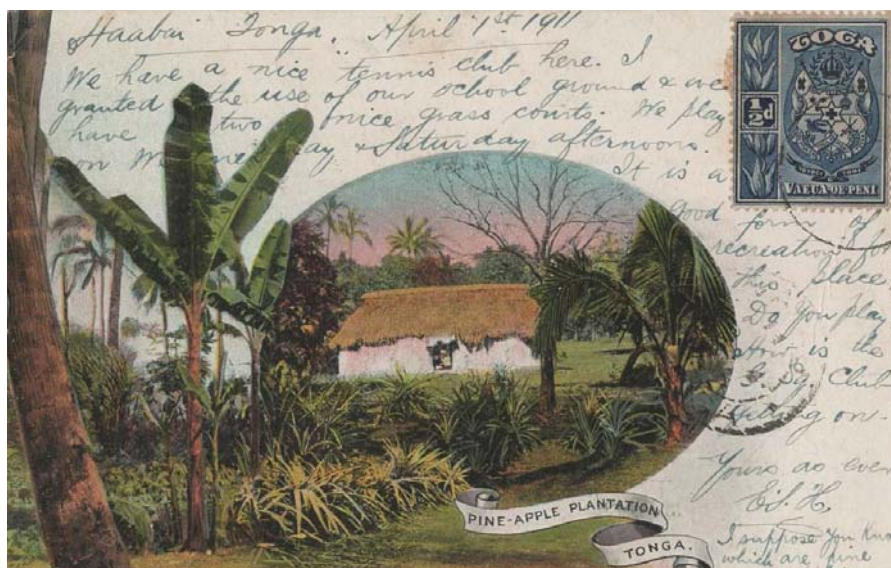 Haabai Tonga. April 1st 1911
We have a nice tennis club here. I
granted the use of our school ground & we
have two nice grass courts. We play
on Wednesday & Saturday afternoons.
It is a
good form of
recreation for
this place
Do you play
How is the
Club
getting on.
Yours as ever
I suppose you know
which are pine
TOGA
½d
VAEUA OE PENI
PINE-APPLE PLANTATION
TONGA.